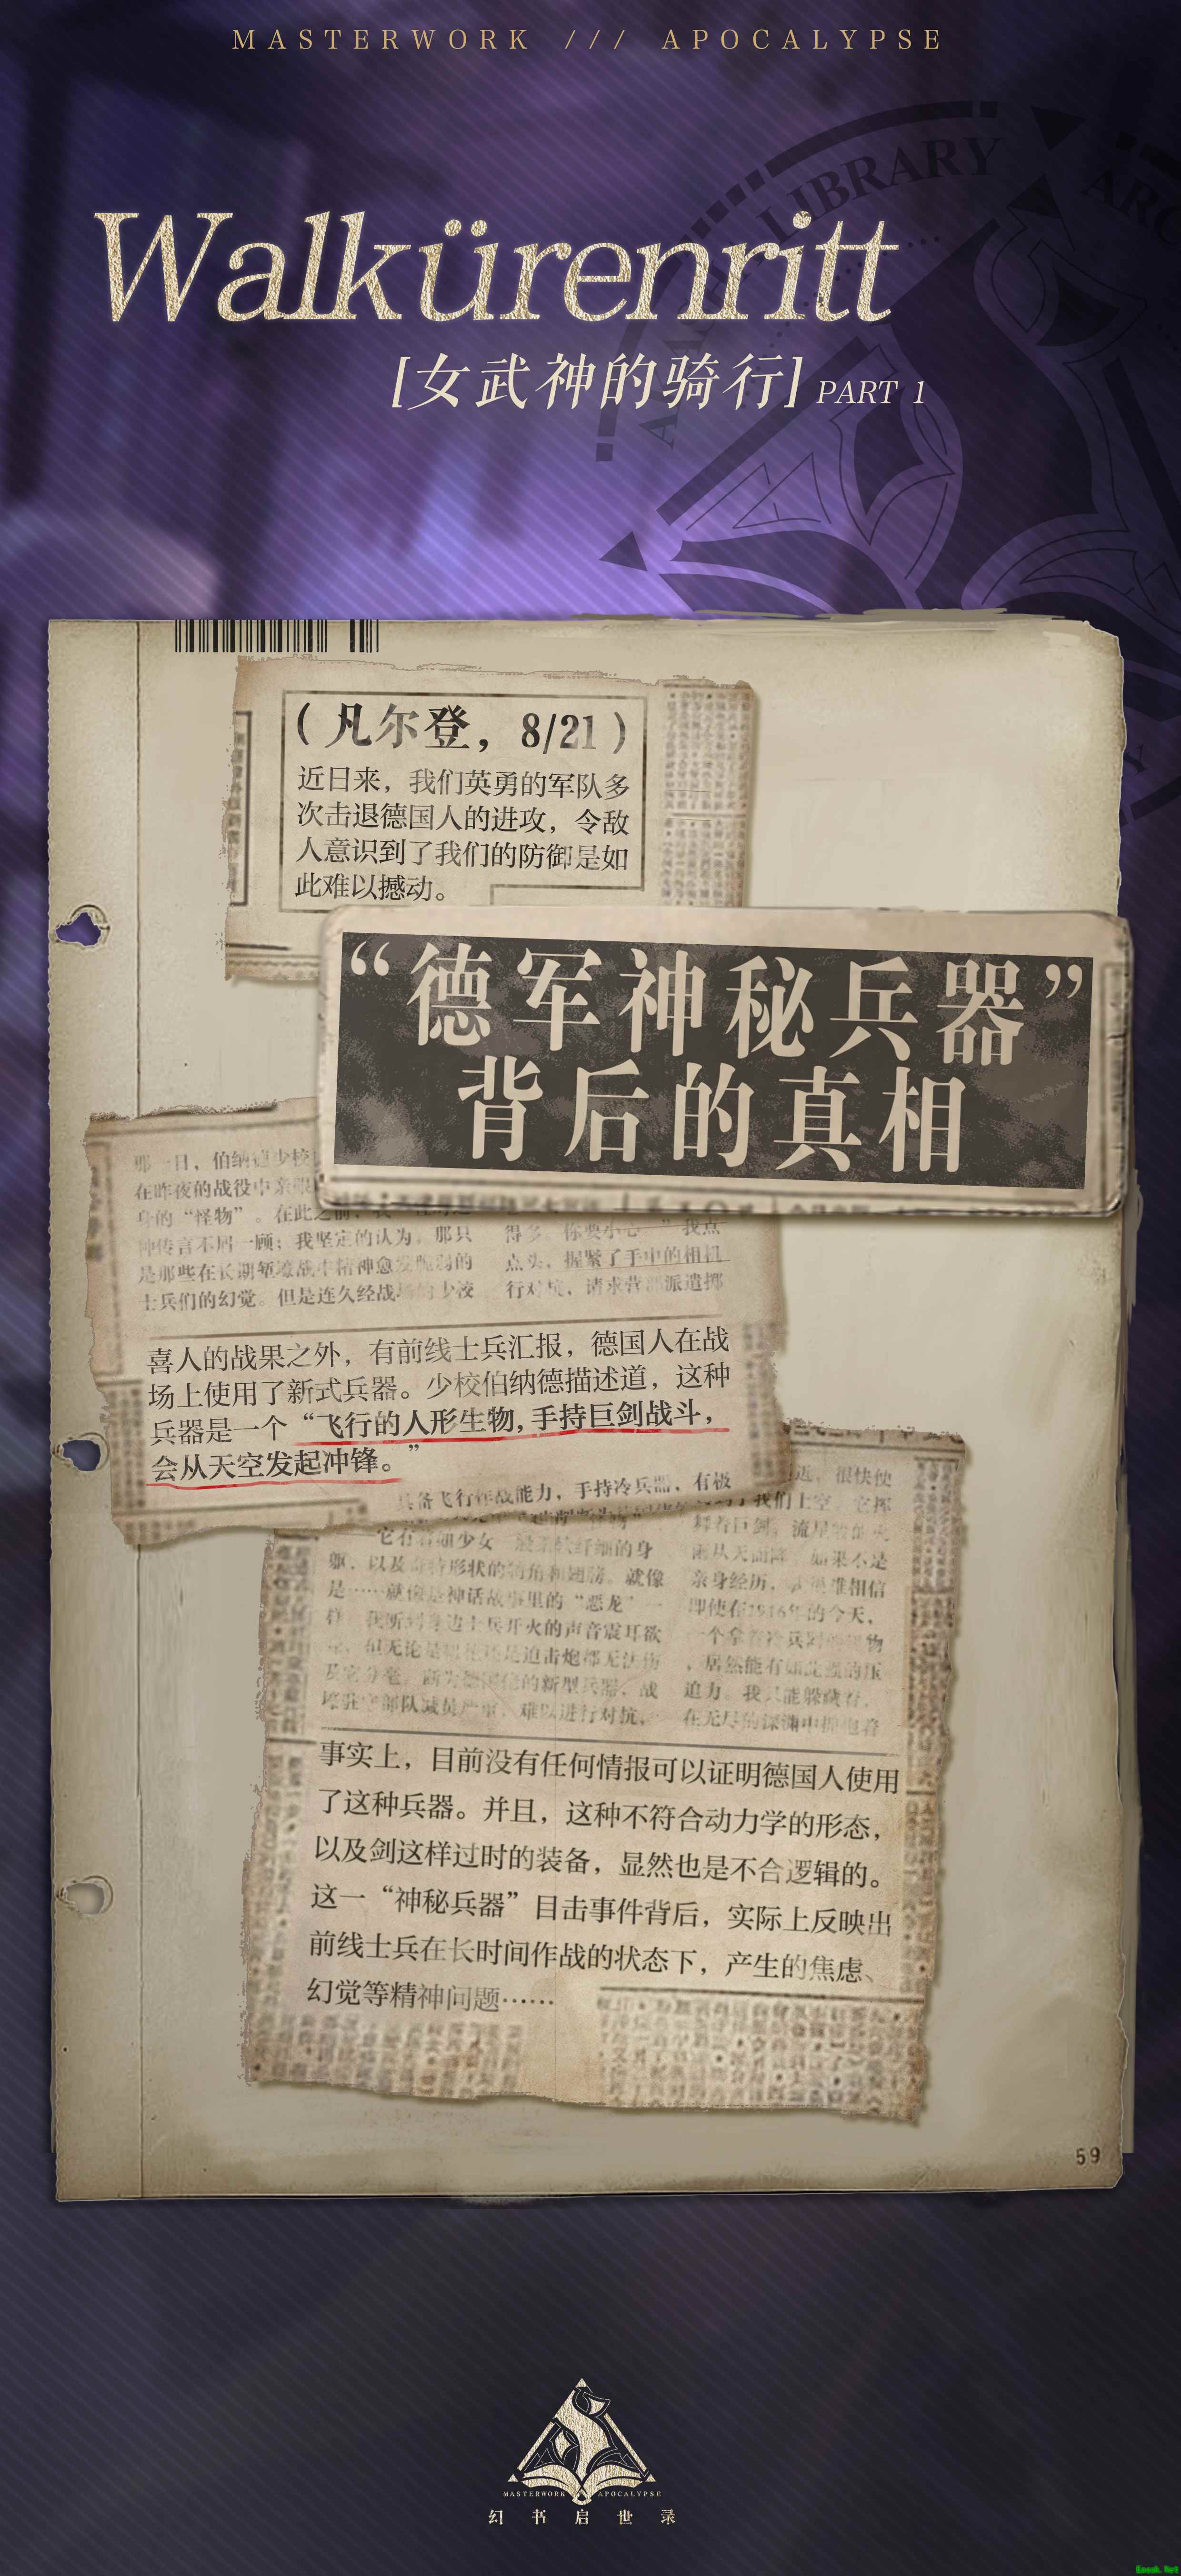 MASTERWORK /// APOCALYPSE
LIBRARY
Walkürenritt
[女武神的骑行] PART 1
（凡尔登，8/21）
近日来，我们英勇的军队多
次击退德国人的进攻，令敌
人意识到了我们的防御是如
此难以撼动。
“德军神秘兵器”
背后的真相
那一日，伯纳德少校
在昨夜的战役中亲眼
身的“怪物”。在此之前，我
种传言不屑一顾；我坚定的认为，那只
是那些在长期堑壕战中精神愈发脆弱的
士兵们的幻觉。但是连久经战场的少校
得多。你要小心。”我点
点头，握紧了手中的相机
行对抗，请求营部派遣掷
喜人的战果之外，有前线士兵汇报，德国人在战
场上使用了新式兵器。少校伯纳德描述道，这种
兵器是一个“飞行的人形生物，手持巨剑战斗，
会从天空发起冲锋。”
具备飞行作战能力，手持冷兵器，有极
它有着如少女一般柔软纤细的身
躯，以及奇特形状的犄角和翅膀。就像
是……就像是神话故事里的“恶龙”一
样。我听到身边士兵开火的声音震耳欲
，但无论是机枪还是迫击炮都无法伤
及它分毫。断为德国佬的新型兵器，战
壕驻守部队减员严重，难以进行对抗，
近，很快便
了我们上空。它挥
舞着巨剑，流星般的火
雨从天而降。如果不是
亲身经历，真很难相信
即使在1916年的今天，
一个拿着冷兵器的怪物
，居然能有如此强的压
迫力。我只能躲藏着，
在无尽的深渊中拥抱着
事实上，目前没有任何情报可以证明德国人使用
了这种兵器。并且，这种不符合动力学的形态，
以及剑这样过时的装备，显然也是不合逻辑的。
这一“神秘兵器”目击事件背后，实际上反映出
前线士兵在长时间作战的状态下，产生的焦虑、
幻觉等精神问题……
59
MASTERWORK APOCALYPSE
幻书启世录